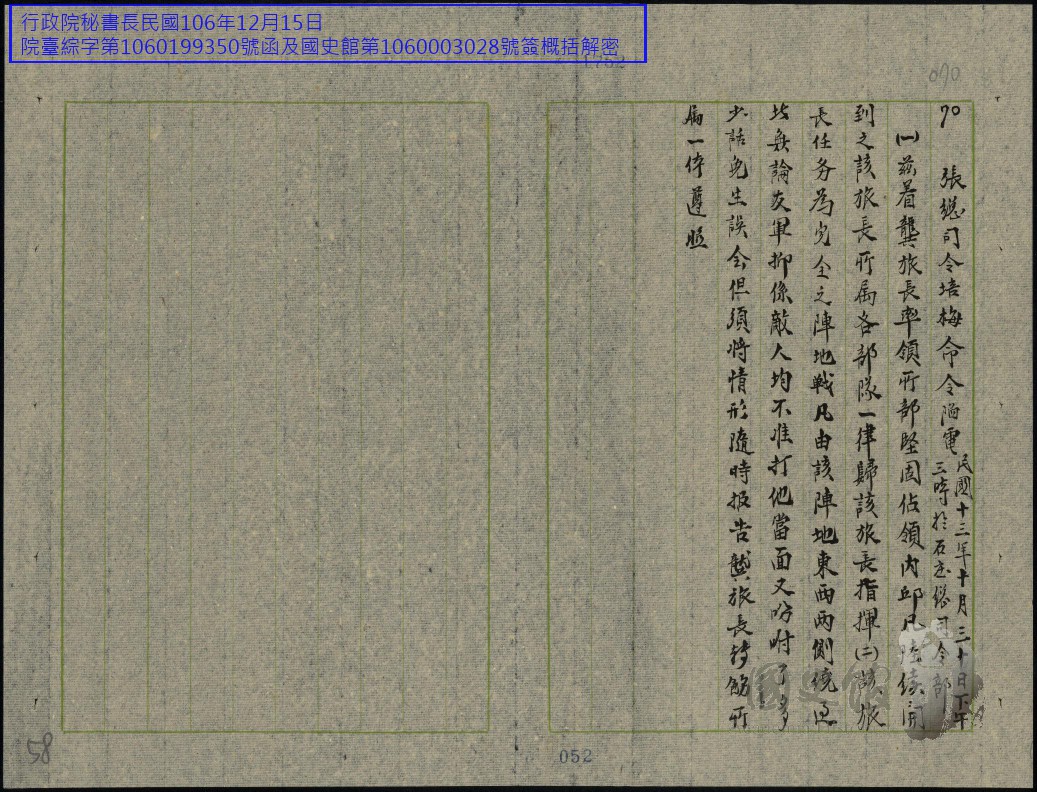 行政院秘書長民國106年12月15日
院臺綜字第1060199350號函及國史館第1060003028號簽概括解密
070
70 張總司令培梅命令 電 民國十三年十月三十日下午
三時於石 總司令部
㈠茲着龔旅長率領所部堅固佔領內邱凡陸續開
到之該旅長所屬各部隊一律歸該旅長指揮㈡該旅
長任务為完全之陣地戰凡由該陣地東西兩側繞過
此無論友軍抑係敵人均不准打他當面又吩咐了多
少話免生誤会但須將情形隨時报告龔旅長转飭所
屬一体遵照
國史館
58
052